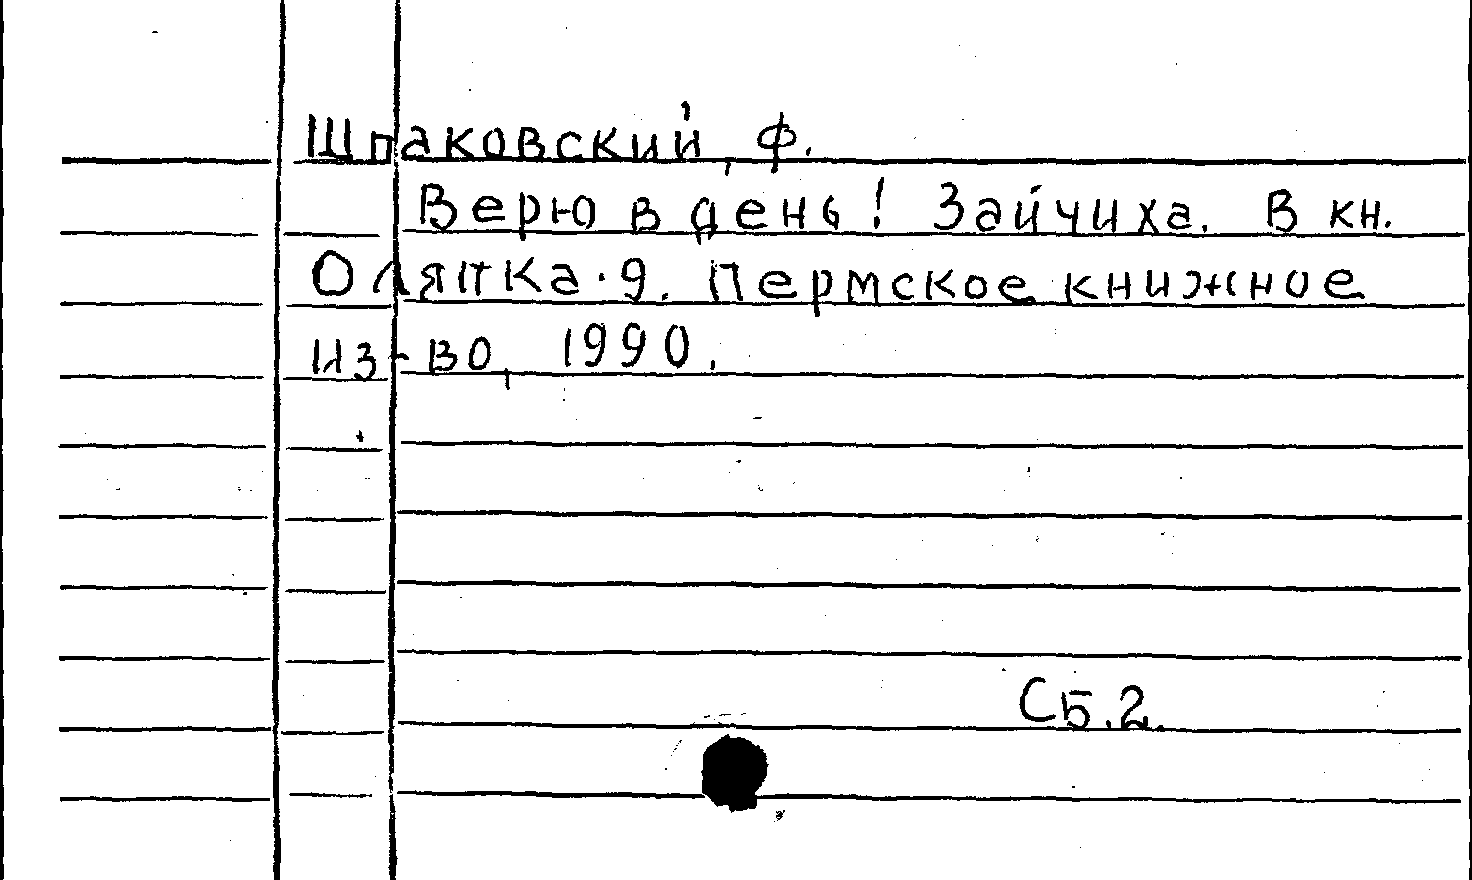 Шпаковский, Ф.
Верю в день! Зайчиха. В кн.
Оляпка·9. Пермское книжное
из-во, 1990.
Сб.2.